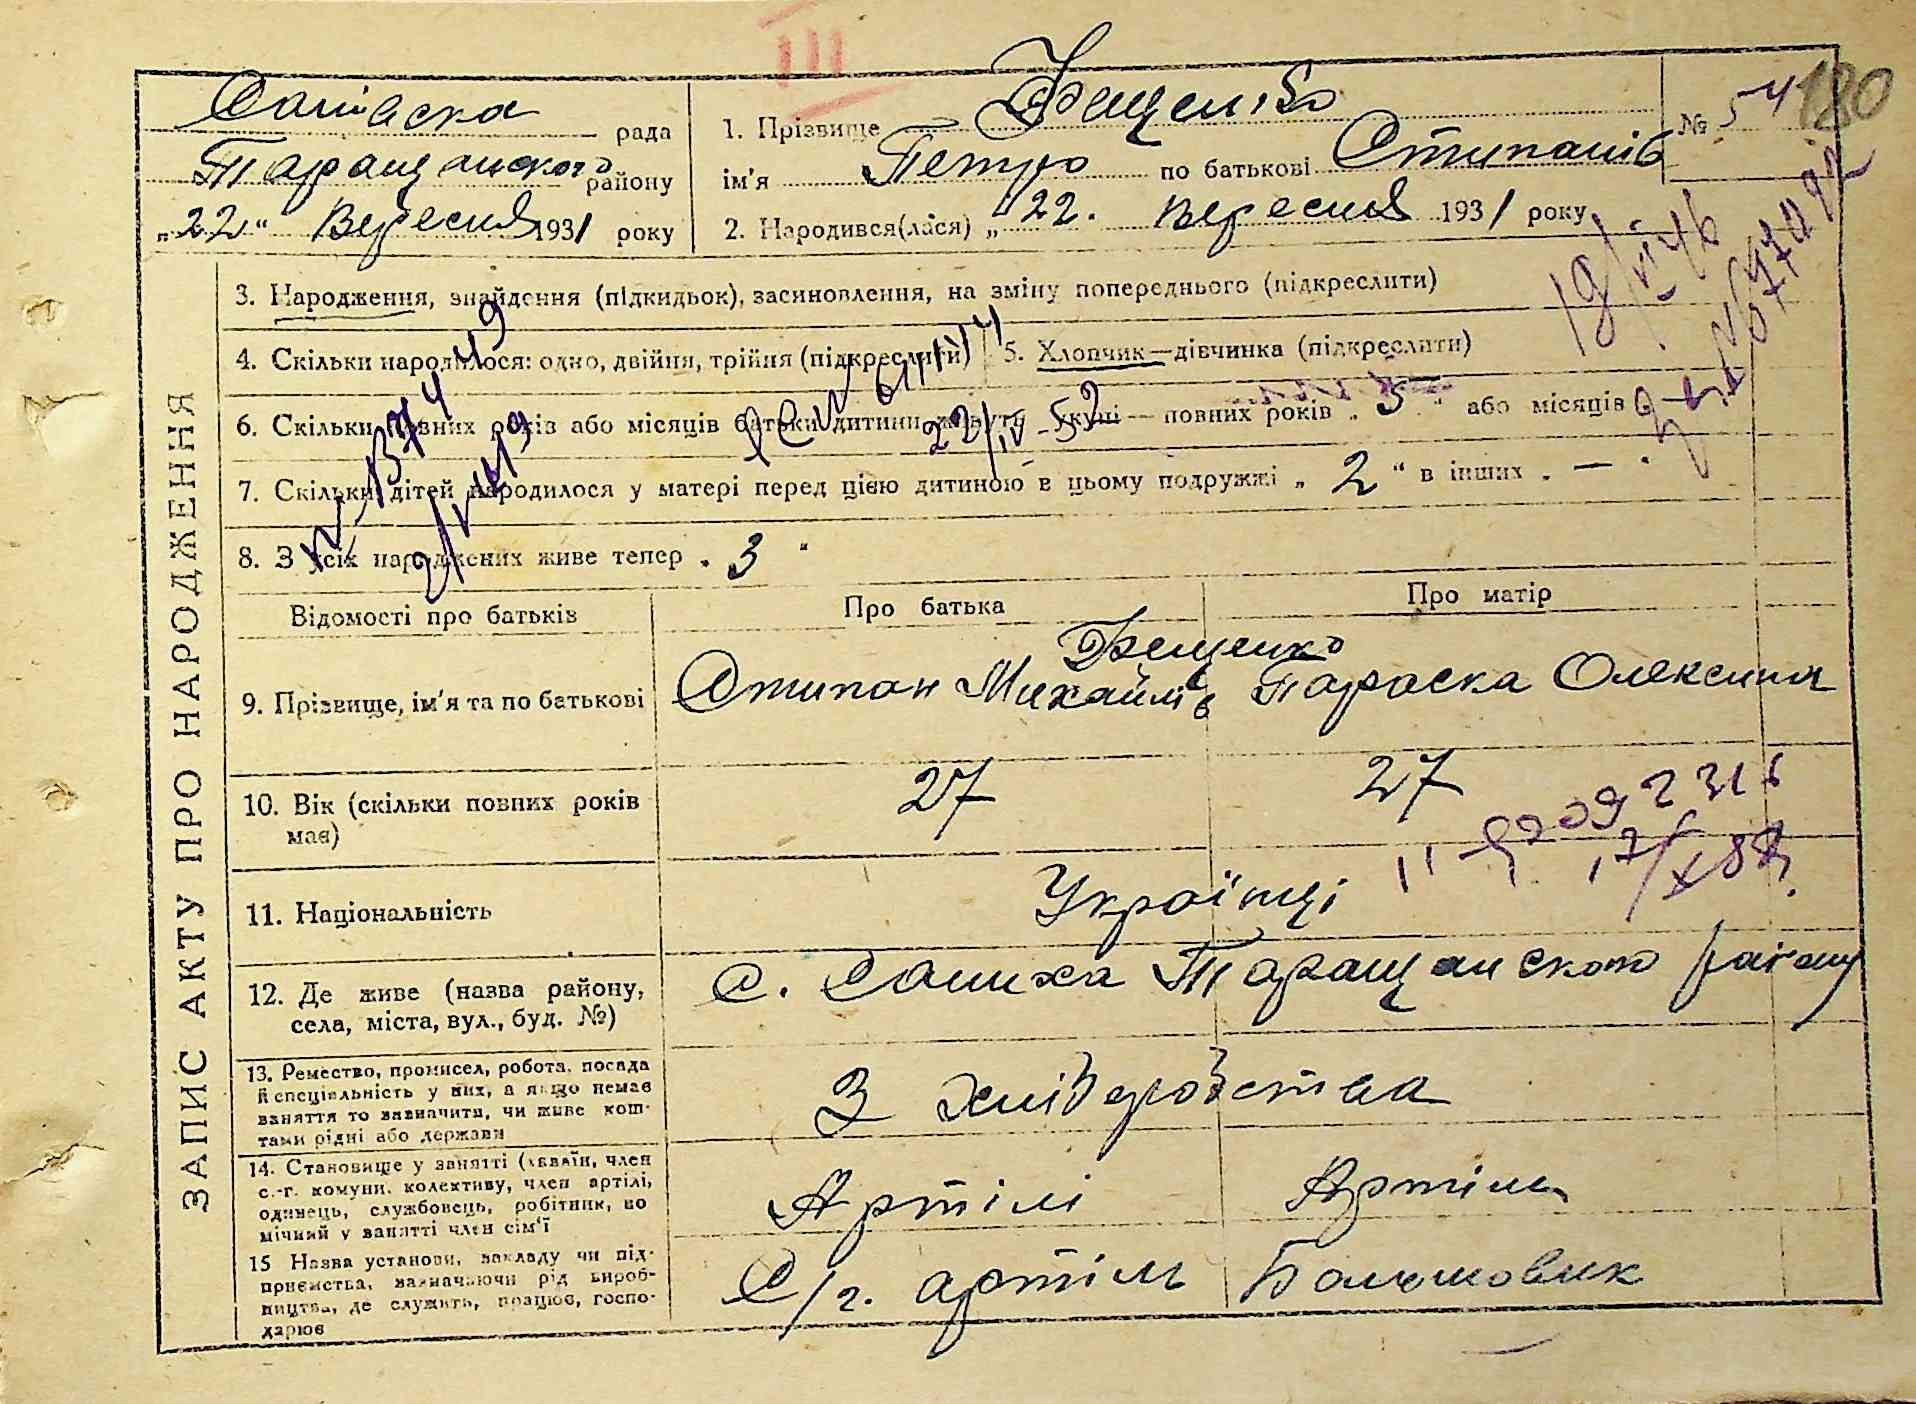 III
Салиська рада
Таращанского району
„22“ Вересня 1931 року
1. Прізвище Фещенко
ім'я Петро по батькові Стипанів
2. Народився(лася) „22. Вересня 1931 року
№ 54
180
ЗАПИС АКТУ ПРО НАРОДЖЕННЯ
3. Народження, знайдення (підкидьок), засиновлення, на зміну попереднього (підкреслити)
4. Скільки народилося: одно, двійня, трійня (підкреслити)
5. Хлопчик—дівчинка (підкреслити)
6. Скільки повних років або місяців батьки дитини живуть укупі — повних років „5“ або місяців
7. Скільки дітей народилося у матері перед цією дитиною в цьому подружжі „2“ в інших „—“
8. З усіх народжених живе тепер „3“
22/IV-52
Відомості про батьків Про батька Про матір
9. Прізвище, ім'я та по батькові
Фещенко
Стипан Михайлів Параска Олексина
10. Вік (скільки повних років
має)
27 27
11. Національність Українці
12. Де живе (назва району,
села, міста, вул., буд. №)
с. Салиха Таращанского району
13. Ремество, промисел, робота, посада
й спеціяльність у них, а якщо немає
заняття то зазначити, чи живе кош-
тами рідні або держави
З хліборобства
14. Становище у занятті (хазяїн, член
с.-г. комуни, колективу, член артілі,
одинець, службовець, робітник, по
мічний у занятті член сім'ї
Артілі Артіль
15 Назва установи, закладу чи під-
приємства, зазначаючи рід вироб-
ництва, де служить, працює, госпо-
дарює
С/г. артіль Большовик